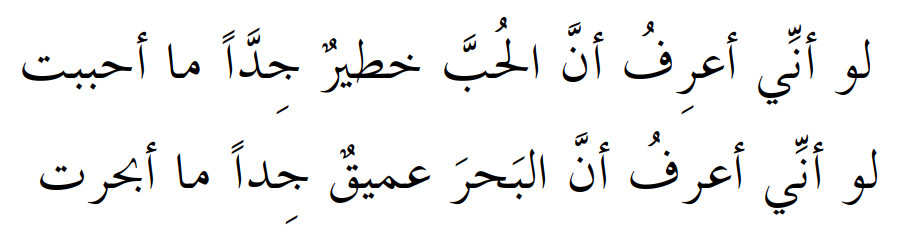 لو أنِّي أعرِفُ أنَّ الحُبَّ خطيرٌ جِدَّاً ما أحببت
لو أنِّي أعرفُ أنَّ البَحرَ عميقٌ جِداً ما أبحرت